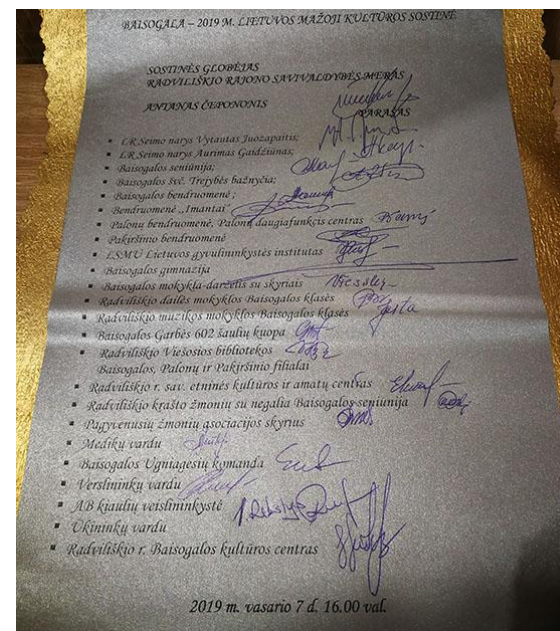 BAISOGALA – 2019 M. LIETUVOS MAŽOJI KULTŪROS SOSTINĖ
SOSTINĖS GLOBĖJAS
RADVILIŠKIO RAJONO SAVIVALDYBĖS MERAS
ANTANAS ČEPONONIS PARAŠAS
▪ LR Seimo narys Vytautas Juozapaitis;
▪ LR Seimo narys Aurimas Gaidžiūnas;
▪ Baisogalos seniūnija;
▪ Baisogalos švč. Trejybės bažnyčia;
▪ Baisogalos bendruomenė ;
▪ Bendruomenė „Imantai"
▪ Palonų bendruomenė, Palonų daugiafunkcis centras
▪ Pakiršinio bendruomenė
▪ LSMU Lietuvos gyvulininkystės institutas
▪ Baisogalos gimnazija
▪ Baisogalos mokykla-darželis su skyriais
▪ Radviliškio dailės mokyklos Baisogalos klasės
▪ Radviliškio muzikos mokyklos Baisogalos klasės
▪ Baisogalos Garbės 602 šaulių kuopa
▪ Radviliškio Viešosios bibliotekos
Baisogalos, Palonų ir Pakiršinio filialai
▪ Radviliškio r. sav. etninės kultūros ir amatų centras
▪ Radviliškio krašto žmonių su negalia Baisogalos seniūnija
▪ Pagyvenusių žmonių asociacijos skyrius
▪ Medikų vardu
▪ Baisogalos Ugniagesių komanda
▪ Verslininkų vardu
▪ AB kiaulių veislininkystė
▪ Ūkininkų vardu
▪ Radviliškio r. Baisogalos kultūros centras
2019 m. vasario 7 d. 16.00 val.